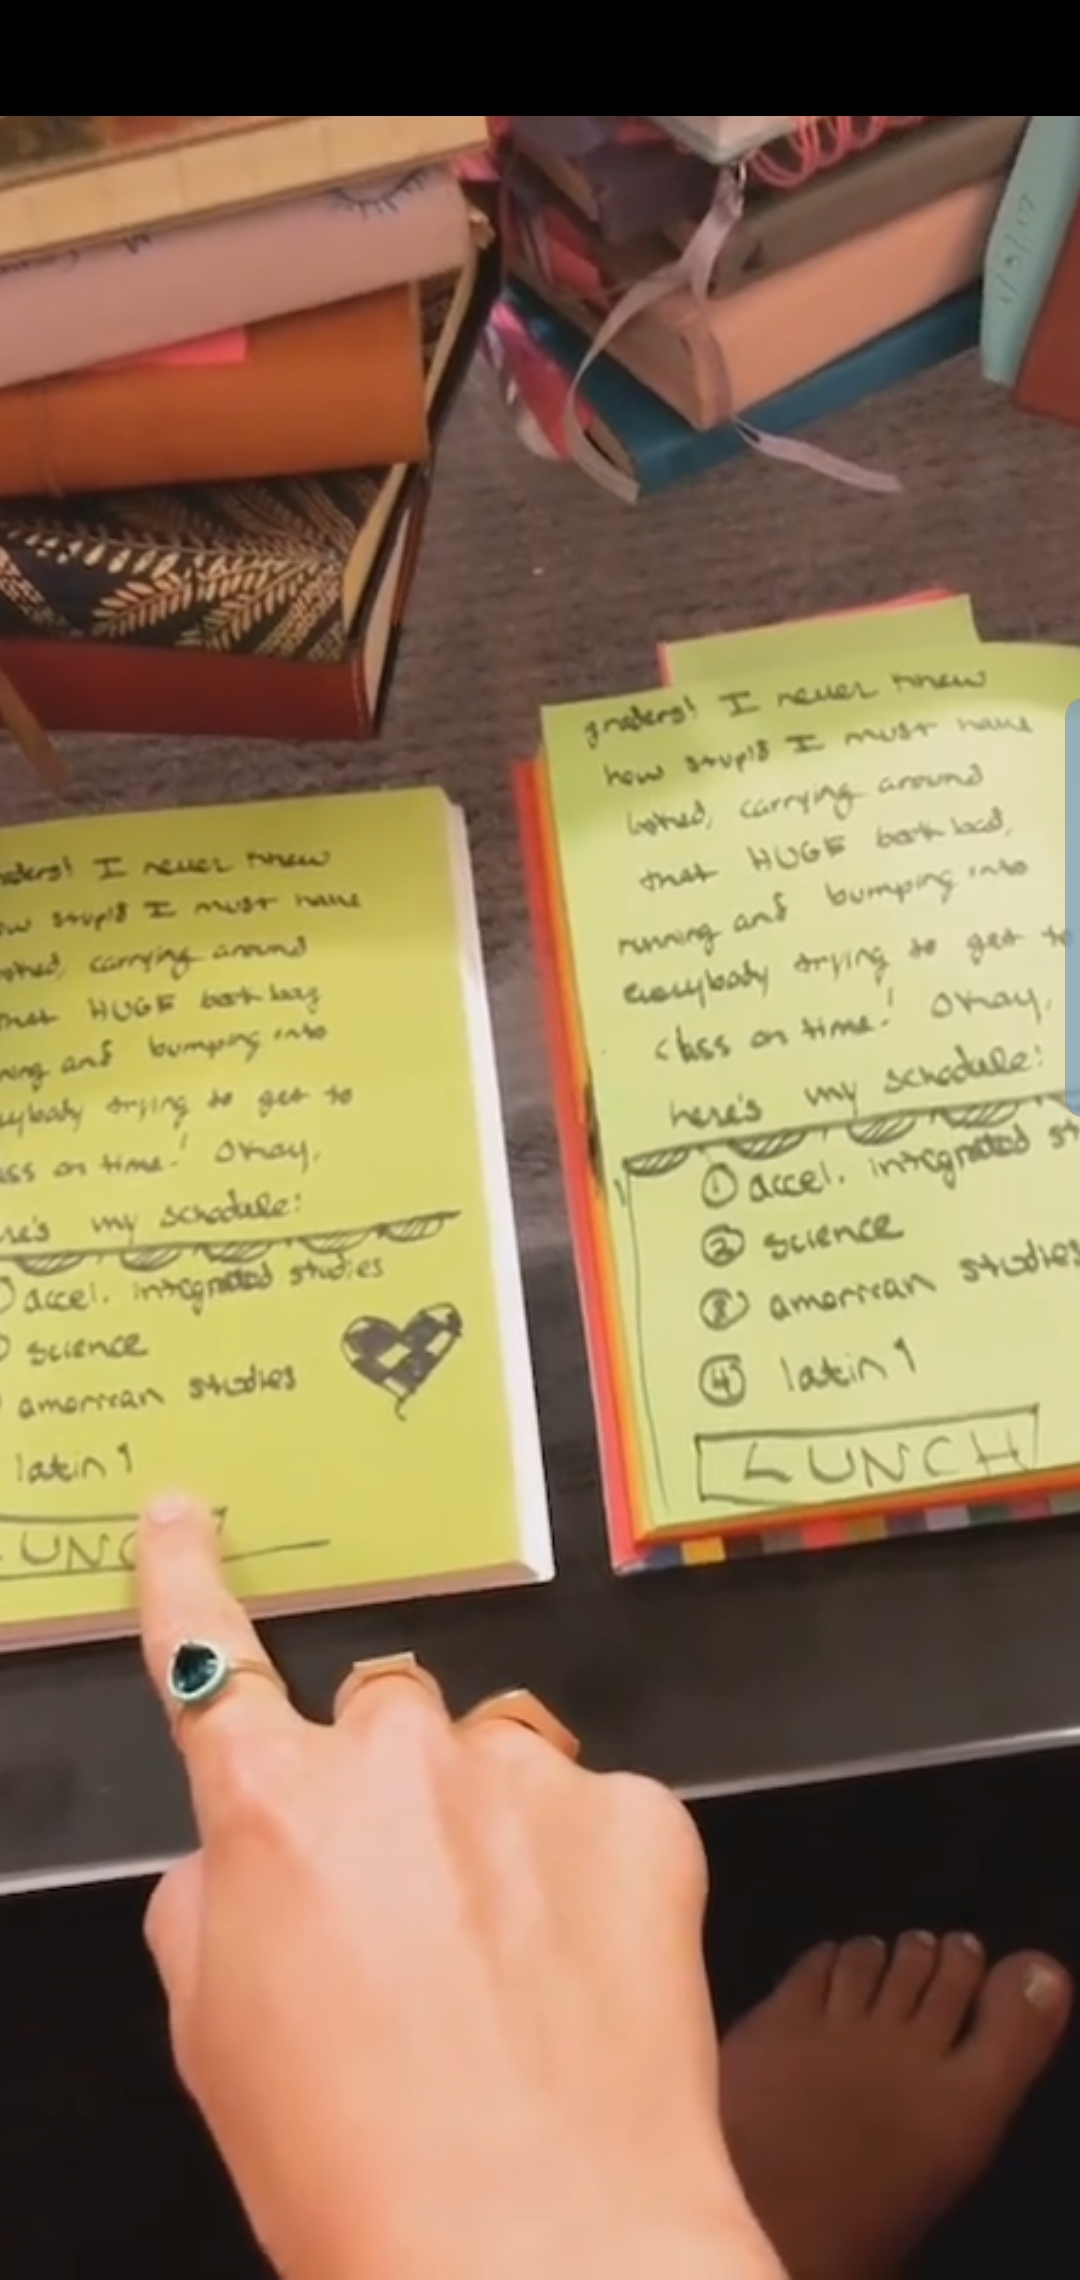 graders! I never knew
how stupid I must have
looked, carrying around
that HUGE book bag,
running and bumping into
everybody trying to get to
class on time! Okay,
here's my schedule:
① accel. integrated st
② science
③ american studies
④ latin 1
LUNCH
aders! I never knew
ow stupid I must have
ooked, carrying around
that HUGE book bag
ning and bumping into
rybody trying to get to
ass on time! Okay,
re's my schedule:
accel. integrated studies
science
american studies
latin 1
LUNC